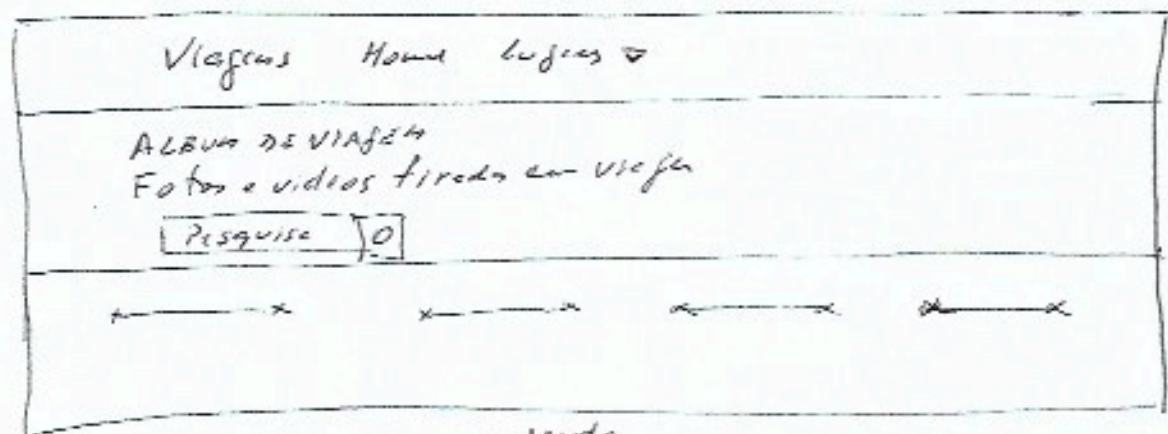 Viagens Home Lugares
ALBUM DE VIAGEM
Fotos e videos tirados em viagem
Pesquise